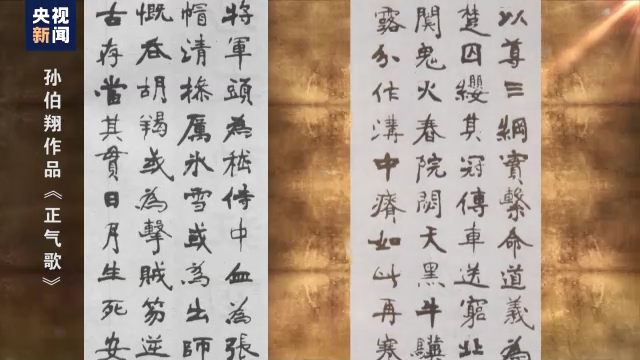 央视新闻
孙伯翔作品《正气歌》
將軍頭為嵇侍中血為張
帽清操厲冰雪或為出師
慨吞胡羯或為擊賊笏逆
古存當其貫日月生死安
以尊三綱實繫命道義為
楚囚纓其冠傳車送窮北
闃鬼火春院閟天黑牛驥
露分作溝中瘠如此再寒